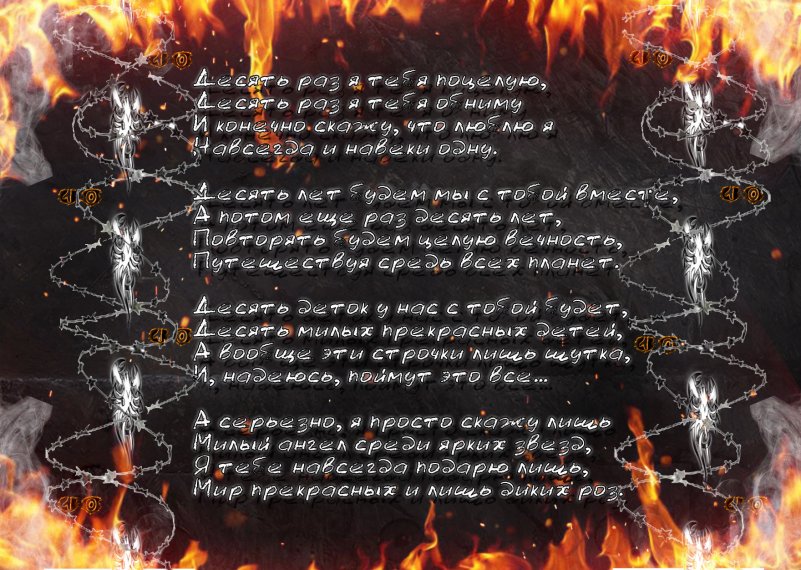 Десять раз я тебя поцелую,
Десять раз я тебя обниму
И конечно скажу, что люблю я
Навсегда и навеки одну.
Десять лет будем мы с тобой вместе,
А потом еще раз десять лет,
Повторять будем целую вечность,
Путешествуя средь всех планет.
Десять деток у нас с тобой будет,
Десять милых прекрасных детей,
А вообще эти строчки лишь шутка,
И, надеюсь, поймут это все...
А серьезно, я просто скажу лишь
Милый ангел среди ярких звезд,
Я тебе навсегда подарю лишь,
Мир прекрасных и лишь диких роз.